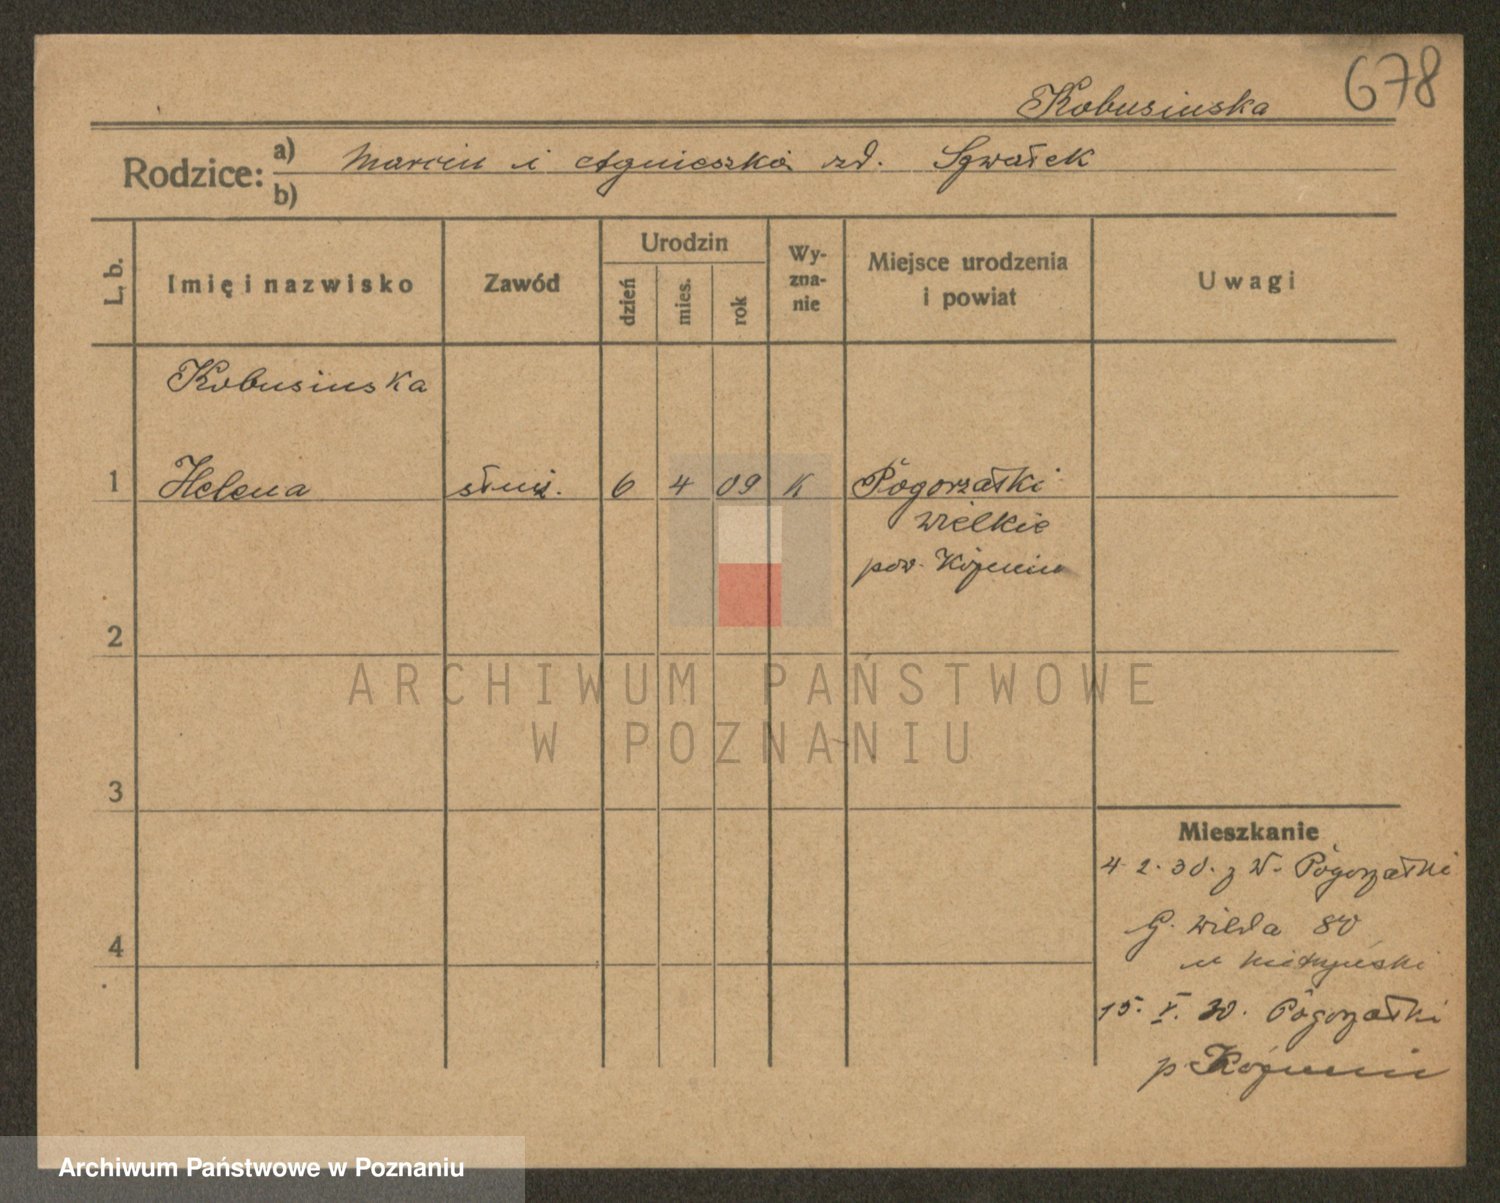 678
Kobusinska
Rodzice: a) Marcin i Agnieszka zd. Sgwałek
b)
L. b. Imię i nazwisko Zawód Urodzin dzień mies. rok Wy-zna-nie Miejsce urodzenia i powiat Uwagi
Kobusinska
1 Helena służ. 6 4 09 K Pogorzałki
wielkie
pow. Koźmin
2
ARCHIWUM PAŃSTWOWE
W POZNANIU
3
Mieszkanie
4. 2. 30. z W. Pogorzałki
G. Wilda 80
u
4
15. X. 30. Pogorzałki
p Koźmin
Archiwum Państwowe w Poznaniu